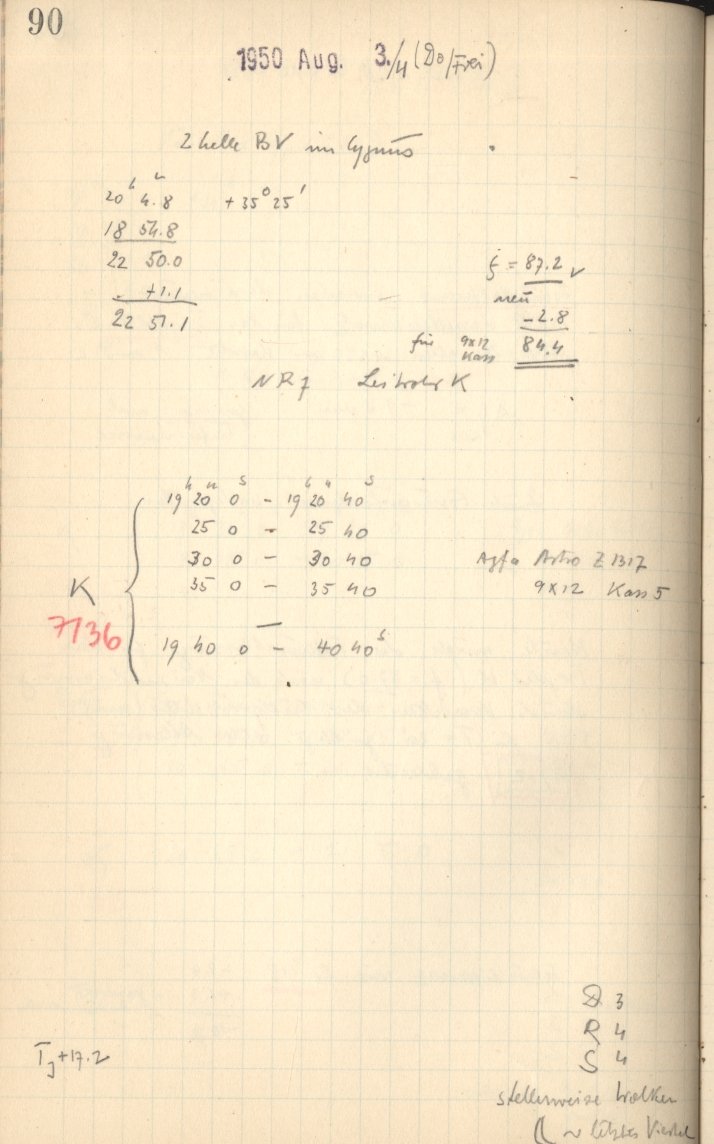 90
1950 Aug. 3./4 (Do/Frei)
2 helle BV im Cygnus
20 h 4.8 m +35° 25'
18 54.8
22 50.0
+1.1
22 51.1
ξ = 87.2 v
neu
-2.8
für 9x12 Kass 84.4
NR 7 K
19 h 20 m 0 s - 19 h 20 m 40 s
25 0 - 25 40
30 0 - 30 40
35 0 - 35 40
19 40 0 - 40 40 s
K
7136
Agfa Astro Z 1317
9x12 Kass 5
D 3
R 4
S 4
T J +17.2
stellenweise Wolken
☾ ~ letztes Viertel